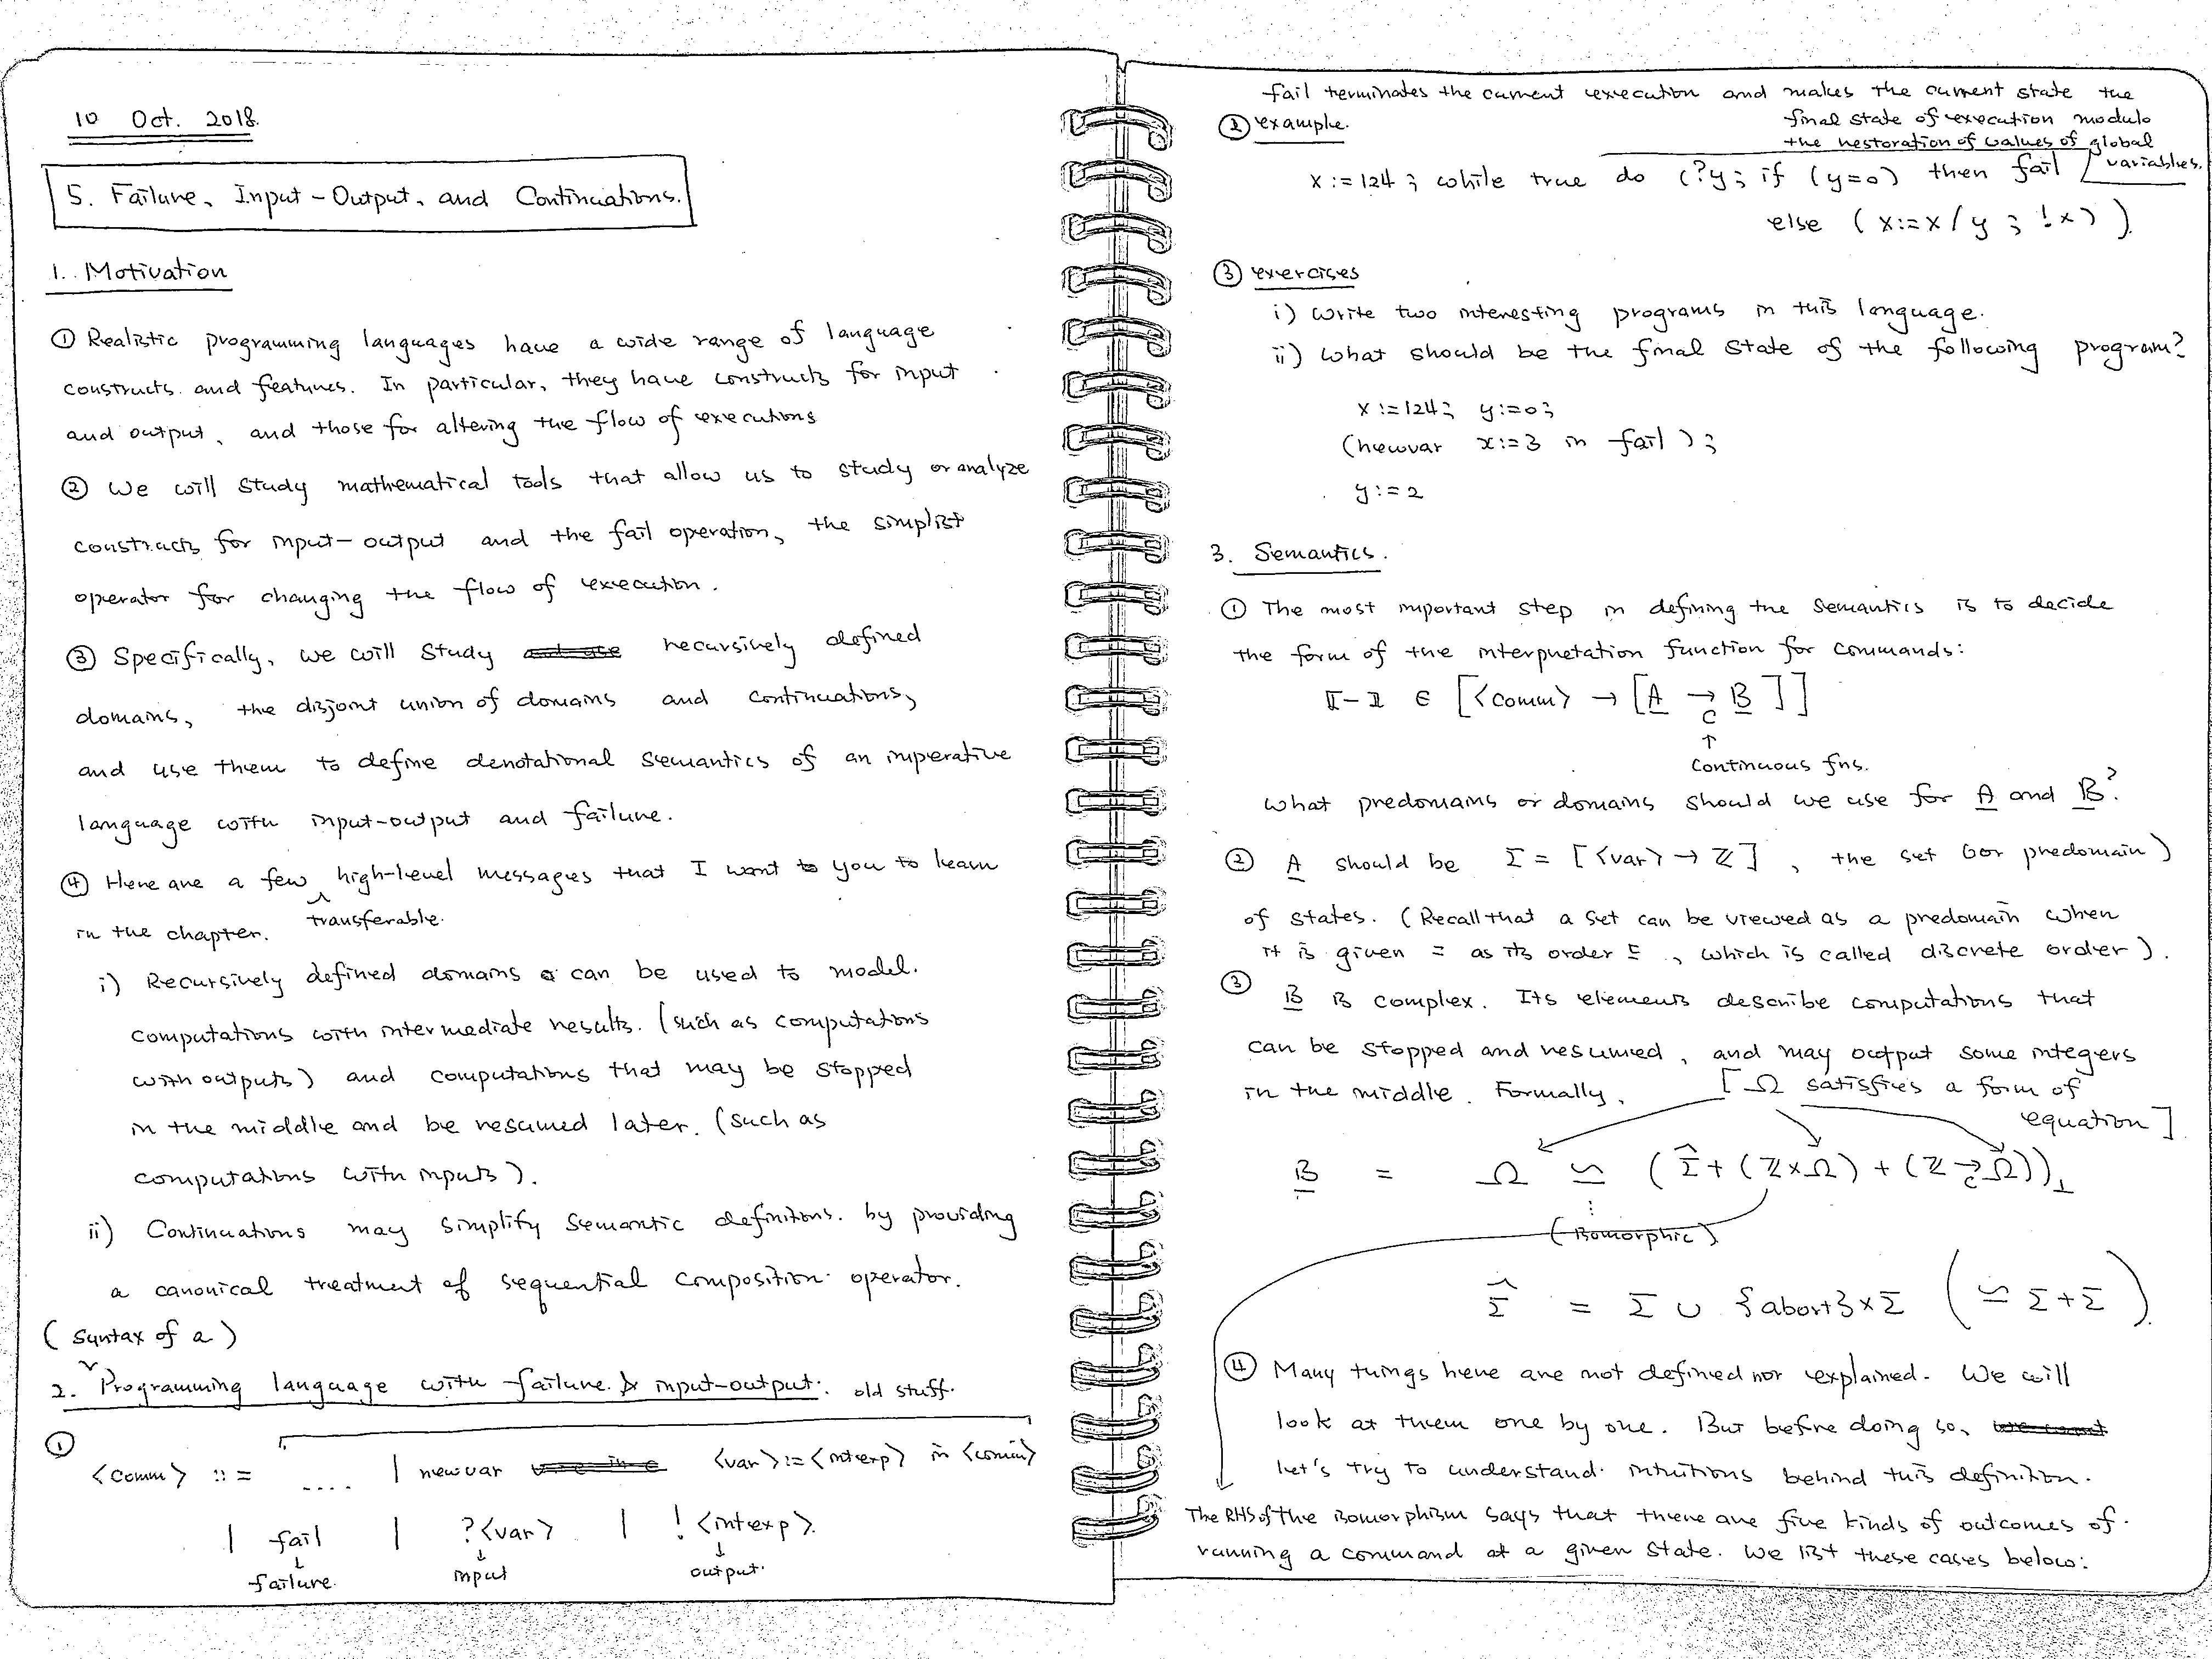 10 Oct. 2018.
5. Failure, Input-Output, and Continuations.
1. Motivation
① Realistic programming languages have a wide range of language
constructs and features. In particular, they have constructs for input
and output, and those for altering the flow of executions
② We will study mathematical tools that allow us to study or analyze
constructs for input-output and the fail operation, the simplist
operator for changing the flow of execution.
③ Specifically, we will study recursively defined
domains, the disjoint union of domains and continuations,
and use them to define denotational semantics of an imperative
language with input-output and failure.
④ Here are a few high-level messages that I want to you to learn
transferable.
in the chapter.
i) Recursively defined domains can be used to model.
computations with intermediate results. (such as computations
with outputs) and computations that may be stopped
in the middle and be resumed later. (such as
computations with inputs).
ii) Continuations may simplify semantic definitions. by providing
a canonical treatment of sequential composition operator.
(Syntax of a)
2. Programming language with failure & input-output. old stuff.
①
<comm> ::= .... | newvar <var>:=<intexp> in <comm>
| fail | ?<var> | !<intexp>.
↓ ↓ ↓
failure. input output.
fail terminates the current execution and makes the current state the
final state of execution modulo
the restoration of values of global
variables.
② example.
x:=124; while true do (?y; if (y=0) then fail
else (x:=x/y ; !x) ).
③ exercises
i) Write two interesting programs in this language.
ii) What should be the final state of the following program?
x:=124; y:=0;
(newvar x:=3 in fail);
y:=2
3. Semantics.
① The most important step in defining the semantics is to decide
the form of the interpretation function for commands:
⟦-⟧ ∈ [<comm> → [A →c B]]
↑
continuous fns.
What predomains or domains should we use for A and B?
② A should be Σ = [<var> → ℤ], the set (or predomain)
of states. (Recall that a set can be viewed as a predomain when
it is given = as its order ⊑, which is called discrete order).
③ B is complex. Its elements describe computations that
can be stopped and resumed, and may output some integers
in the middle. Formally, [Ω satisfies a form of
equation]
B = Ω ≃ (Σ̂ + (ℤ×Ω) + (ℤ →c Ω))⊥
(isomorphic)
Σ̂ = Σ ∪ {abort}×Σ (≃ Σ+Σ).
④ Many things here are not defined nor explained. We will
look at them one by one. But before doing so,
let's try to understand intuitions behind this definition.
The RHS of the isomorphism says that there are five kinds of outcomes of
running a command at a given state. We list these cases below: